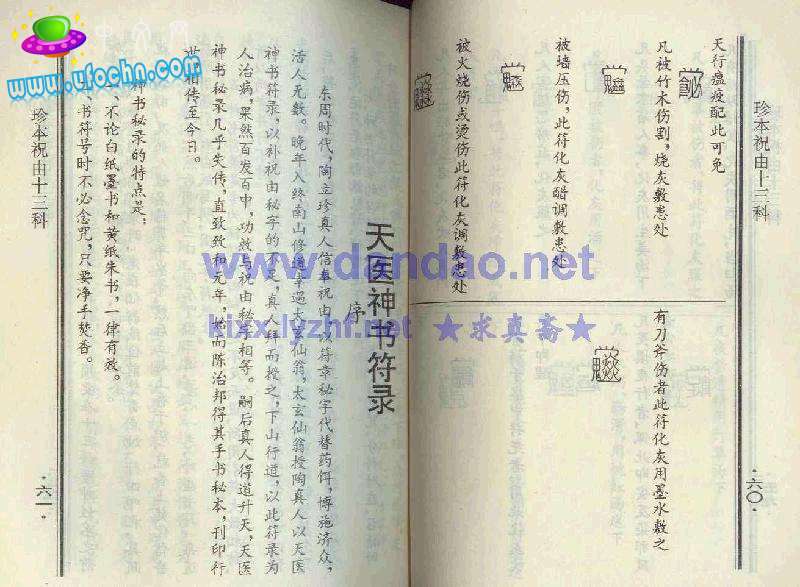 珍本祝由十三科
天行瘟疫配此可免
凡被竹木伤割，烧灰敷患处
被墙压伤，此符化灰醋调敷患处
被火烧伤或烫伤此符化灰调敷患处
有刀斧伤者此符化灰用墨水敷之
·六〇·
天医神书符录
序
东周时代，陶立珍真人信奉祝由，以符章秘字代替药饵，博施济众，
活人无数。晚年入终南山修道幸遇太玄仙翁，太玄仙翁授陶真人以天医
神书符录，以补祝由秘字的不足，真人拜而授之，下山行道，以此符录为
人治病，果然百发百中，功效与祝由秘字相等。嗣后真人得道升天，天医
神书秘录几乎失传，直致致和元年，
而陈治邦得其手书秘本，刊印行
相传至今日。
神书秘录的特点是：
一、不论白纸墨书和黄纸朱书，一律有效。
书符号时不必念咒，只要净手焚香。
珍本祝由十三科
·六一·
www.ufochn.com
www.dandao.net
kixx.lyzhf.net ★求真斋★